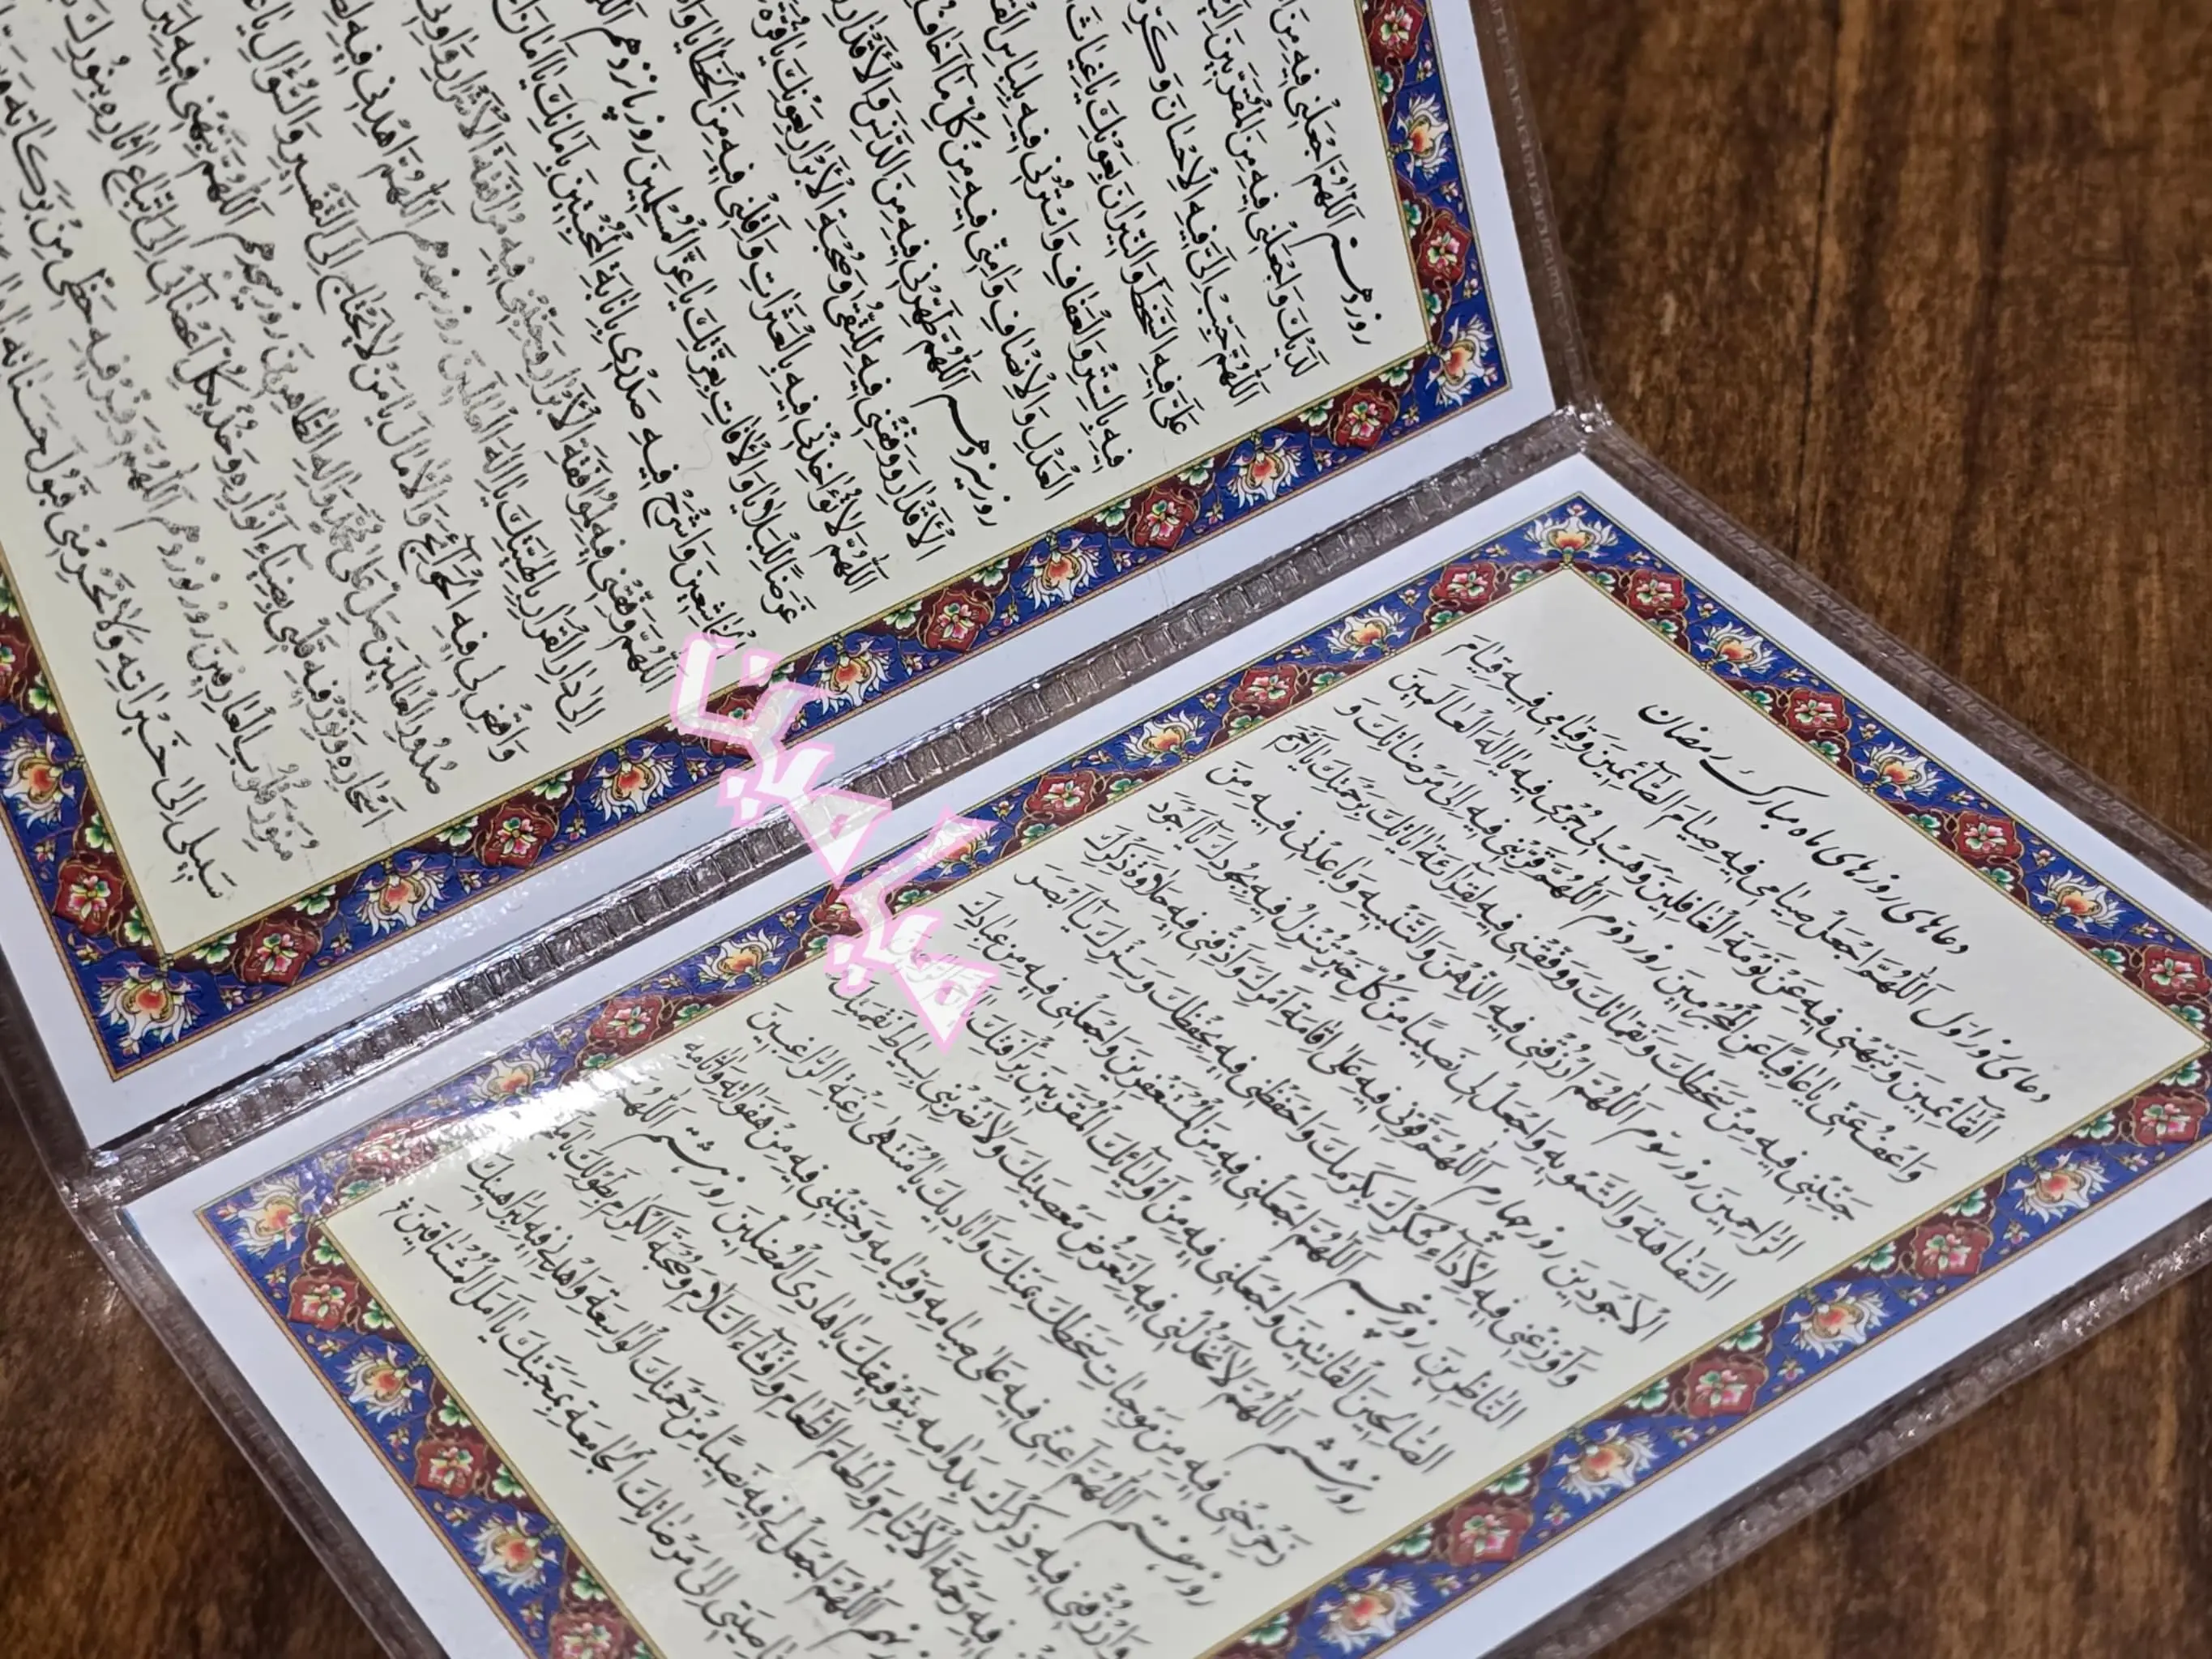 دعاهای روزهای ماه مبارک رمضان
دعای روز اول اَللّٰهُمَّ اجْعَلْ صِیٰامی فیهِ صِیٰامَ الصّٰٓائِمینَ وَقِیٰامی فیهِ قِیٰامَ
الْقٰٓائِمینَ وَنَبِّهْنی فیهِ عَنْ نَوْمَةِ الْغٰافِلینَ وَهَبْ لی جُرْمی فیهِ یٰا اِلٰهَ الْعٰالَمینَ
وَاعْفُ عَنّی یٰا عٰافِیًا عَنِ الْمُجْرِمینَ روز دوم اَللّٰهُمَّ قَرِّبْنی فیهِ اِلیٰ مَرْضٰاتِکَ وَ
جَنِّبْنی فیهِ مِنْ سَخَطِکَ وَنَقِمٰاتِکَ وَوَفِّقْنی فیهِ لِقِرٰآئَةِ اٰیٰاتِکَ بِرَحْمَتِکَ یٰا اَرْحَمَ
الرّٰاحِمینَ روز سوم اَللّٰهُمَّ ارْزُقْنی فیهِ الذِّهْنَ وَالتَّنْبیهَ وَبٰاعِدْنی فیهِ مِنَ
السَّفٰاهَةِ وَالتَّمْویهِ وَاجْعَلْ لی نَصیبًا مِنْ کُلِّ خَیْرٍ تُنْزِلُ فیهِ بِجُودِکَ یٰٓا اَجْوَدَ
الْاَجْوَدینَ روز چهارم اَللّٰهُمَّ قَوِّنی فیهِ عَلیٰ اِقٰامَةِ اَمْرِکَ وَاَذِقْنی فیهِ حَلٰاوَةَ ذِکْرِکَ
وَاَوْزِعْنی فیهِ لِاَدٰآءِ شُکْرِکَ بِکَرَمِکَ وَاحْفَظْنی فیهِ بِحِفْظِکَ وَسِتْرِکَ یٰٓا اَبْصَرَ
النّٰاظِرینَ روز پنجم اَللّٰهُمَّ اجْعَلْنی فیهِ مِنَ الْمُسْتَغْفِرینَ وَاجْعَلْنی فیهِ مِنْ عِبٰادِکَ
الصّٰالِحینَ الْقٰانِتینَ وَاجْعَلْنی فیهِ مِنْ اَوْلِیٰٓائِکَ الْمُقَرَّبینَ بِرَاْفَتِکَ
روز ششم اَللّٰهُمَّ لٰا تَخْذُلْنی فیهِ لِتَعَرُّضِ مَعْصِیَتِکَ وَلٰا تَضْرِبْنی بِسِیٰاطِ نَقِمَتِکَ
زَحْزِحْنی فیهِ مِنْ مُوجِبٰاتِ سَخَطِکَ بِمَنِّکَ وَاَیٰادیکَ یٰا مُنْتَهیٰ رَغْبَةِ الرّٰاغِبینَ
روز هفتم اَللّٰهُمَّ اَعِنّی فیهِ عَلیٰ صِیٰامِهِ وَقِیٰامِهِ وَجَنِّبْنی فیهِ مِنْ هَفَوٰاتِهِ وَاٰثٰامِهِ
وَارْزُقْنی فیهِ ذِکْرَکَ بِدَوٰامِهِ بِتَوْفیقِکَ یٰا هٰادِیَ الْمُضِلّینَ روز هشتم اَللّٰهُمَّ
فیهِ رَحْمَةَ الْاَیْتٰامِ وَاِطْعٰامَ الطَّعٰامِ وَاِفْشٰٓاءَ السَّلٰامِ وَصُحْبَةَ الْکِرٰامِ بِطَوْلِکَ
نهم اَللّٰهُمَّ اجْعَلْ لی فیهِ نَصیبًا مِنْ رَحْمَتِکَ الْوٰاسِعَةِ وَاهْدِنی فیهِ لِبَرٰاهینِکَ
اِلیٰ مَرْضٰاتِکَ الْجٰامِعَةِ بِمَحَبَّتِکَ یٰا اَمَلَ الْمُشْتٰاقینَ
روز دهم اَللّٰهُمَّ اجْعَلْنی فیهِ مِنَ
لَدَیْکَ وَاجْعَلْنی فیهِ مِنَ الْمُقَرَّبینَ
اَللّٰهُمَّ حَبِّبْ اِلَیَّ فیهِ الْاِحْسٰانَ وَکَرِّهْ
عَلَیَّ فیهِ السَّخَطَ وَالنّیرٰانَ بِعَوْنِکَ یٰا غِیٰاثَ
فیهِ بِالسِّتْرِ وَالْعَفٰافِ وَاسْتُرْنی فیهِ بِلِبٰاسِ
الْعَدْلِ وَالْاِنْصٰافِ وَاٰمِنّی فیهِ مِنْ کُلِّ مٰٓا اَخٰافُ
روز سیزدهم اَللّٰهُمَّ طَهِّرْنی فیهِ مِنَ الدَّنَسِ وَالْاَقْذٰارِ
الْاَقْدٰارِ وَوَفِّقْنی فیهِ لِلتُّقیٰ وَصُحْبَةِ الْاَبْرٰارِ بِعَوْنِکَ یٰا قُرَّةَ
اَللّٰهُمَّ لٰا تُؤٰاخِذْنی فیهِ بِالْعَثَرٰاتِ وَاَقِلْنی فیهِ مِنَ الْخَطٰایٰا
غَرَضًا لِلْبَلٰایٰا وَالْاٰفٰاتِ بِعِزَّتِکَ یٰا عِزَّ الْمُسْلِمینَ روز پانزدهم
الْخٰاشِعینَ وَاشْرَحْ فیهِ صَدْری بِاِنٰابَةِ الْمُخْبِتینَ بِاَمٰانِکَ یٰٓا اَمٰانَ
اَللّٰهُمَّ وَفِّقْنی فیهِ لِمُوٰافَقَةِ الْاَبْرٰارِ وَجَنِّبْنی فیهِ مُرٰافَقَةَ الْاَشْرٰارِ
اِلیٰ دٰارِ الْقَرٰارِ بِاِلٰهِیَّتِکَ یٰٓا اِلٰهَ الْعٰالَمینَ روز هفدهم اَللّٰهُمَّ اهْدِنی فیهِ
وَاقْضِ لی فیهِ الْحَوٰٓائِجَ وَالْاٰمٰالَ یٰا مَنْ لٰا یَحْتٰاجُ اِلَی التَّفْسیرِ وَالسُّؤٰالِ
صُدُورِ الْعٰالَمینَ صَلِّ عَلیٰ مُحَمَّدٍ وَاٰلِهِ الطّٰاهِرینَ روز هجدهم اَللّٰهُمَّ نَبِّهْنی فیهِ
اَسْحٰارِهِ وَنَوِّرْ فیهِ قَلْبی بِضِیٰٓاءِ اَنْوٰارِهِ وَخُذْ بِکُلِّ اَعْضٰٓائی اِلَی اتِّبٰاعِ اٰثٰارِهِ بِنُورِکَ
مُنَوِّرَ قُلُوبِ الْعٰارِفینَ روز نوزدهم اَللّٰهُمَّ وَفِّرْ فیهِ حَظّی مِنْ بَرَکٰاتِهِ
سَبیلی اِلیٰ خَیْرٰاتِهِ وَلٰا تَحْرِمْنی قَبُولَ حَسَنٰاتِهِ